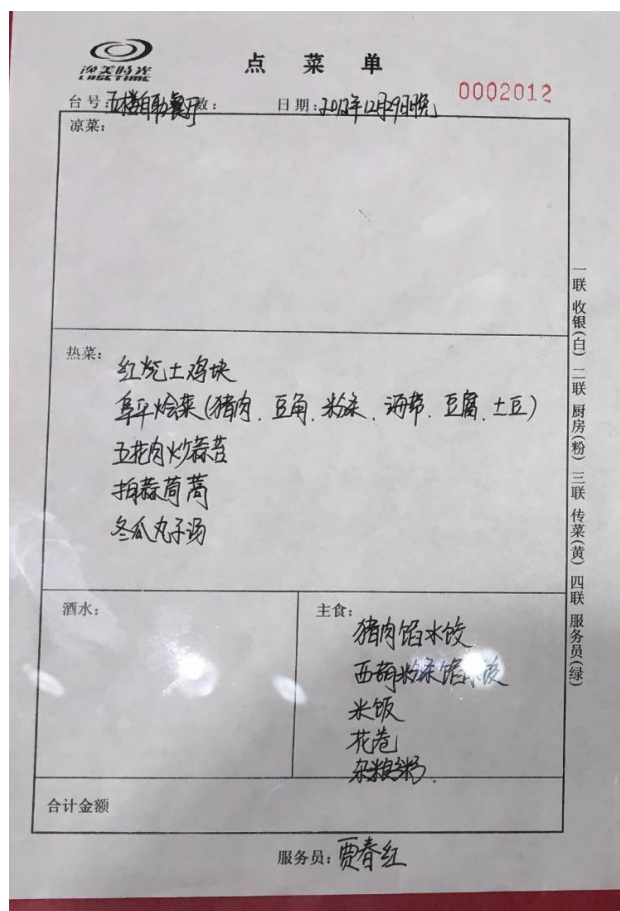 逸美时光
LASETIME
点菜单
0002012
台号:五楼自助餐厅 数: 日期:2012年12月29日晚
凉菜:
热菜:
红烧土鸡块
阜平烩菜(猪肉、豆角、粉条、海带、豆腐、土豆)
五花肉炒蒜苔
拍蒜茼蒿
冬瓜丸子汤
酒水:
主食:
猪肉馅水饺
西葫粉条馅水饺
米饭
花卷
杂粮粥.
合计金额
服务员:贾春红
一联 收银(白) 二联 厨房(粉) 三联 传菜(黄) 四联 服务员(绿)